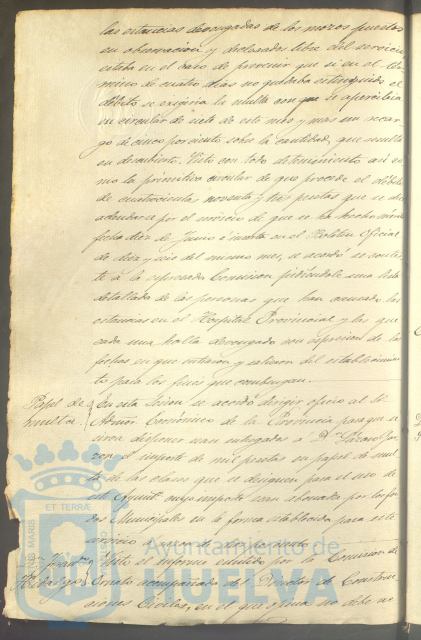 las estancias devengadas de los mozos puestos
en observacion y declarados libre del servicio
estaba en el caso de prevenir que si en el tér
mino de cuatro dias no quedaba estinguido el
débito se exijiria la multa con que se apercibia
en circular de siete de este mes y mas un recar
go de cinco por ciento sobre la cantidad, que resulta
en descubierto. Visto con todo detenimiento así co
mo la primitiva circular de que procede el débito
de cuatrocientas noventa y tres pesetas que se dice
adeudar a por el servicio de que se ha hecho mérito
fecha diez de Junio é inserta en el Boletin Oficial
de diez y seis del mismo mes, se acordó se contes
te á la espresada Comision pidiéndole una lista
detallada de las personas que han causado las
estancias en el Hospital Provincial y las que
cada una halla devengado con espresion de las
fechas en que entraron y salieron del establecimien
to para los fines que convengan.
Papel de
multas
En esta Sesion se acordó dirigir oficio al Sr.
Admor. Económico de la Provincia para que se
sirva disponer sean entregadas á Dn. Lazaro
con el importe de mil pesetas en papel de mul
tas de las clases que se designen para el uso de
este Ayunt. cuyo importe sera abonado por los fon
dos Municipales en la forma establecida para este
servicio
Hidalgo
Visto el informe emitido por la Comision de
Ornato acompañado del Director de Construc
ciones Civiles, en el que opina no debe ve
Ayuntamiento de
HUELVA
ET TERRÆ
MARIS